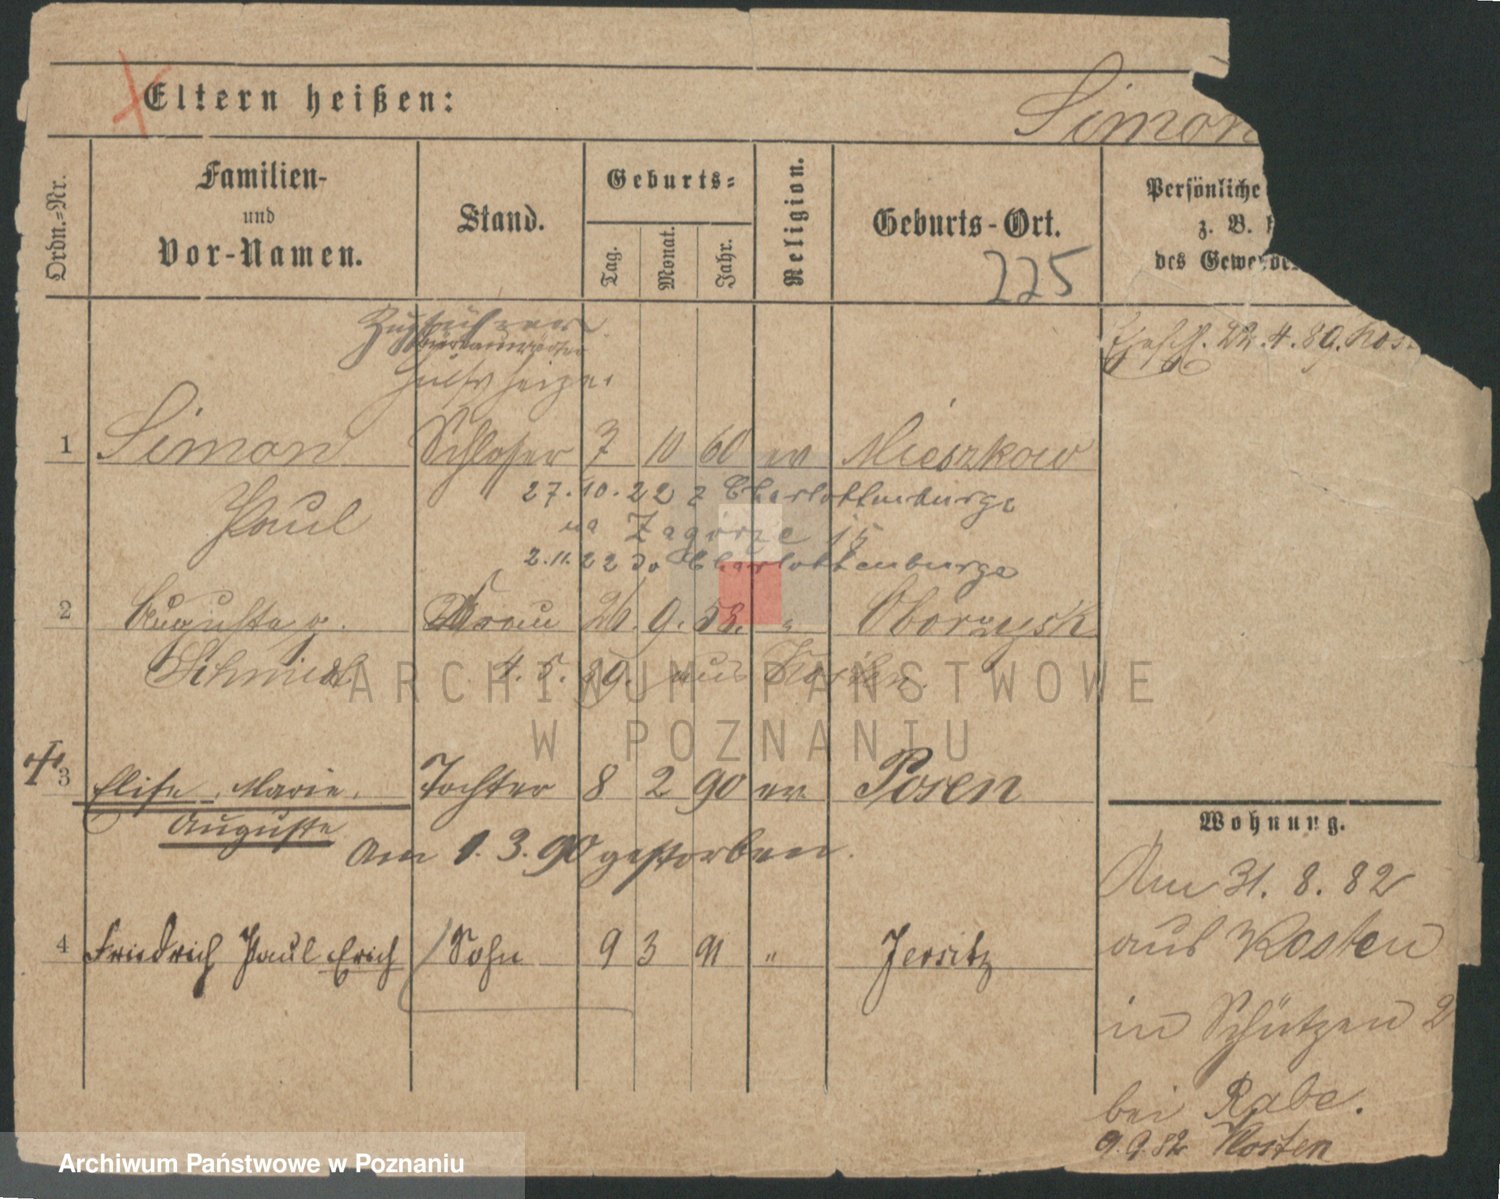 Eltern heißen:
Simon
Ordn.=Nr.
Familien-
und
Vor-Namen.
Stand.
Geburts=
Tag.
Monat.
Jahr.
Religion.
Geburts-Ort.
225
Persönliche
z. B.
des Gewerbe
22.4.89. Kos
Hülfsheizer
1 Simon Schlosser 7 10 60 ev Mieszkow
27.10.22 z Charlottenburga
Paul
na Zagórze 15
2.11.22 do Charlottenburga
2 Auguste g. Frau 26. 9. 58. " Oborzysk
Schmidt 4.5.89. aus Kosten
3 Elise Marie Tochter 8 2 90 ev. Posen
Auguste
Am 1.3.90 gestorben.
4 Friedrich Paul Erich Sohn 9 3 91 " Jersitz
Wohnung.
Am 31.8.82
aus Kosten
in Schützen 2
bei Rabe.
9.9.82 Kosten
ARCHIWUM PAŃSTWOWE
W POZNANIU
Archiwum Państwowe w Poznaniu